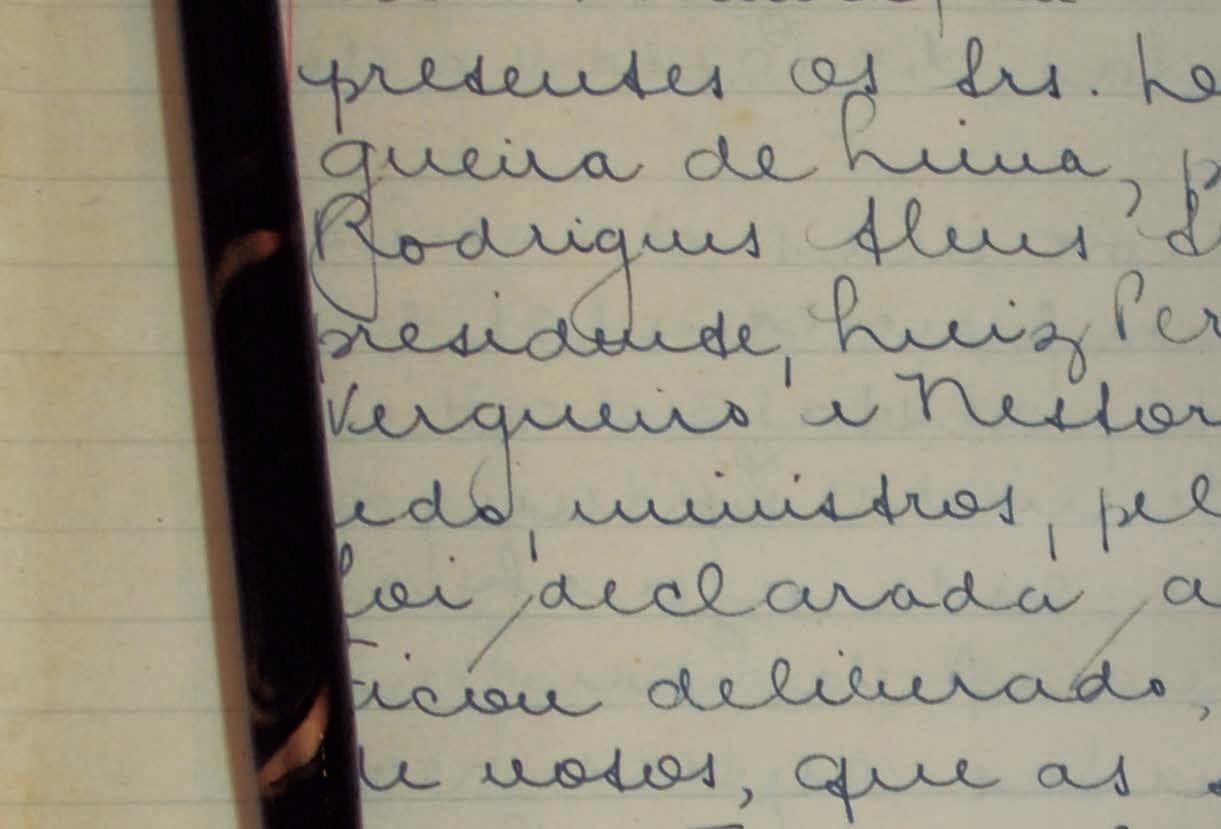 presentes os srs. Le
gueira de Lima, p
Rodrigues Alves S
presidente, Luiz Per
Vergueiro e Nestor
edo, ministros, pel
foi declarada a
ficou deliberado,
de votos, que as